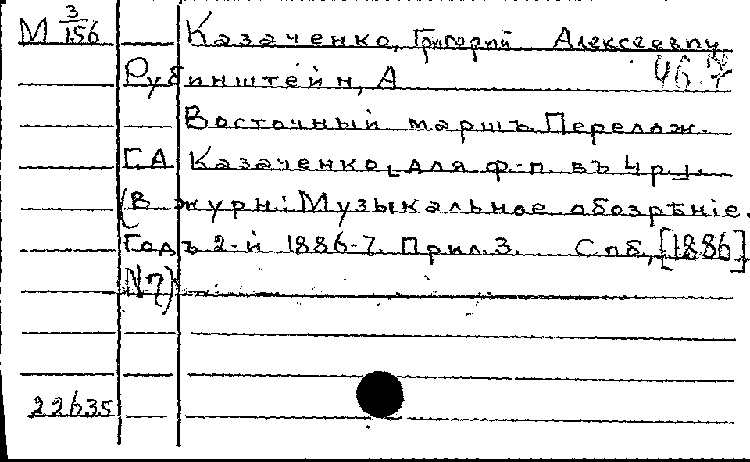 М 3/156 Казаченко, Григорий Алексеевич
Рубинштейн, А 46.7
Восточный маршъ. Перелож.
Г.А Казаченко [для ф-п. въ 4 р.].
(В журн: Музыкальное обозрѣние.
Годъ 2-й 1886-7. Прил. 3. Спб, [1886]
N7)
22635